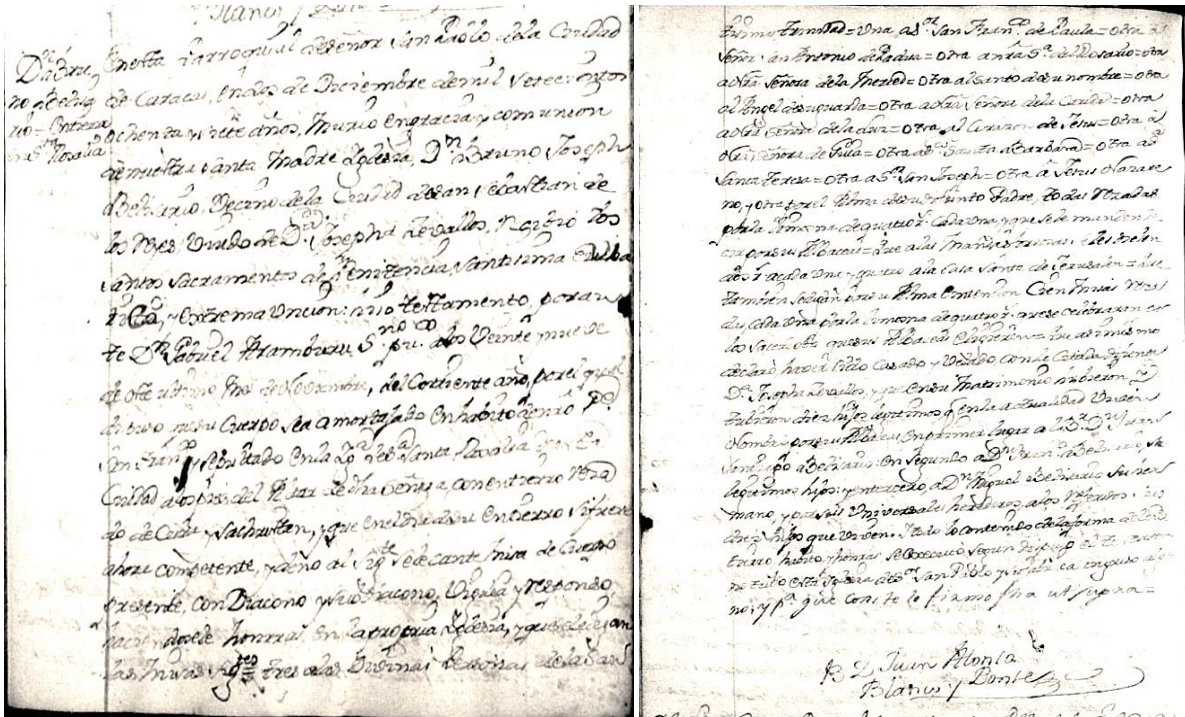 Blanco y Ponte
Dn Bru
no Bedria
rio = Entierro
en Sta Rosalia
En esta Parroquial de señor San Pablo de la Ciudad
de Caracas, en dos de Diciembre de mil setecientos
ochenta y siete años, Murio en gracia y comunion
de nuestra Santa Madre Iglesia, Dn Bruno Joseph
Bedriario, Vecino de la Ciudad de San Sebastian de
los Reyes, Viudo de Da Josepha Zevallos, Recibió los
santos Sacramentos de Penitencia, Santissima
y extrema Uncion: hiso testamento, por an
te Dn Gabriel Aramburu S.no pu.co a los Veinte y nueve
de este ultimo Mes de Noviembre, del Corriente año, por el qual
dispuso que su Cuerpo sea amortajado en habito de nro P.e
San Fran.co y sepultado en la Ig.a de Santa Rosalia de esta
Ciudad a los pies del Altar de Nra Señora, con entierro reza
do de Cura y Sachristan, y que en el dia de su Entierro si fuere
ahora competente, y sino al sig.te se de cante Misa de Cuerpo
presente, con Diacono y Subdiacono, Vigilia y responso
honrras en la propria Iglesia, y que se digan
las Misas sig.tes tres a las Divinas Personas de la San
tisima trinidad = Una a S.or San Fran.co de Paula = otra al
Señor San Antonio de Padua = otra a nra S.a del Rosario = otra
a Nra Señora de la Merced = otra al Santo de su nombre = otra
al Angel de su guarda = otra a Nra Señora de la Caridad = otra
a Nra Señora de la Luz = otra al Corazon de Jesus = otra a
Nra Señora de Guia = otra a Santa Barbara = otra a
Santa Teresa = otra a S.or San Joseph = otra a Jesus Nazare
no, y otra por el Alma de su difunto Padre, todas rezadas
por la limosna de quatro r.s cada una, y que se manden de
cir por sus Albaceas = que a las Mandas forsosas
dos r.s a cada una y quatro a la Casa Santa de Jerusalen = que
tambien se digan por su Alma e intencion Cien Misas reza
das, cada una por la limosna de quatro r.s
los Sacerdotes que sus Albaceas eligieren = que asimismo
declaró haver sido Casado y Velado con la Citada difunta
Da Josepha Zevallos, y que en su Matrimonio hubieron y
tubieron diez hijos legitimos q.e en la actualidad Viven
Nombró por sus Albaceas en primer lugar a Juan
Santiago Bedriario: en segundo a Dn Bedriario, sus
legitimos hijos: y en tercero a Dn Miguel Bedriario su her
mano, y por sus Universales herederos a los referidos sus
diez hijos que viven. Y todo lo contenido de la forma de
habito, y honrras se executó segun dispuso el
esta Iglesia de S.or San Pablo
no, y p.a que conste lo firmo fha ut supra =
B. D. Juan Alonso
Blanco y Ponte